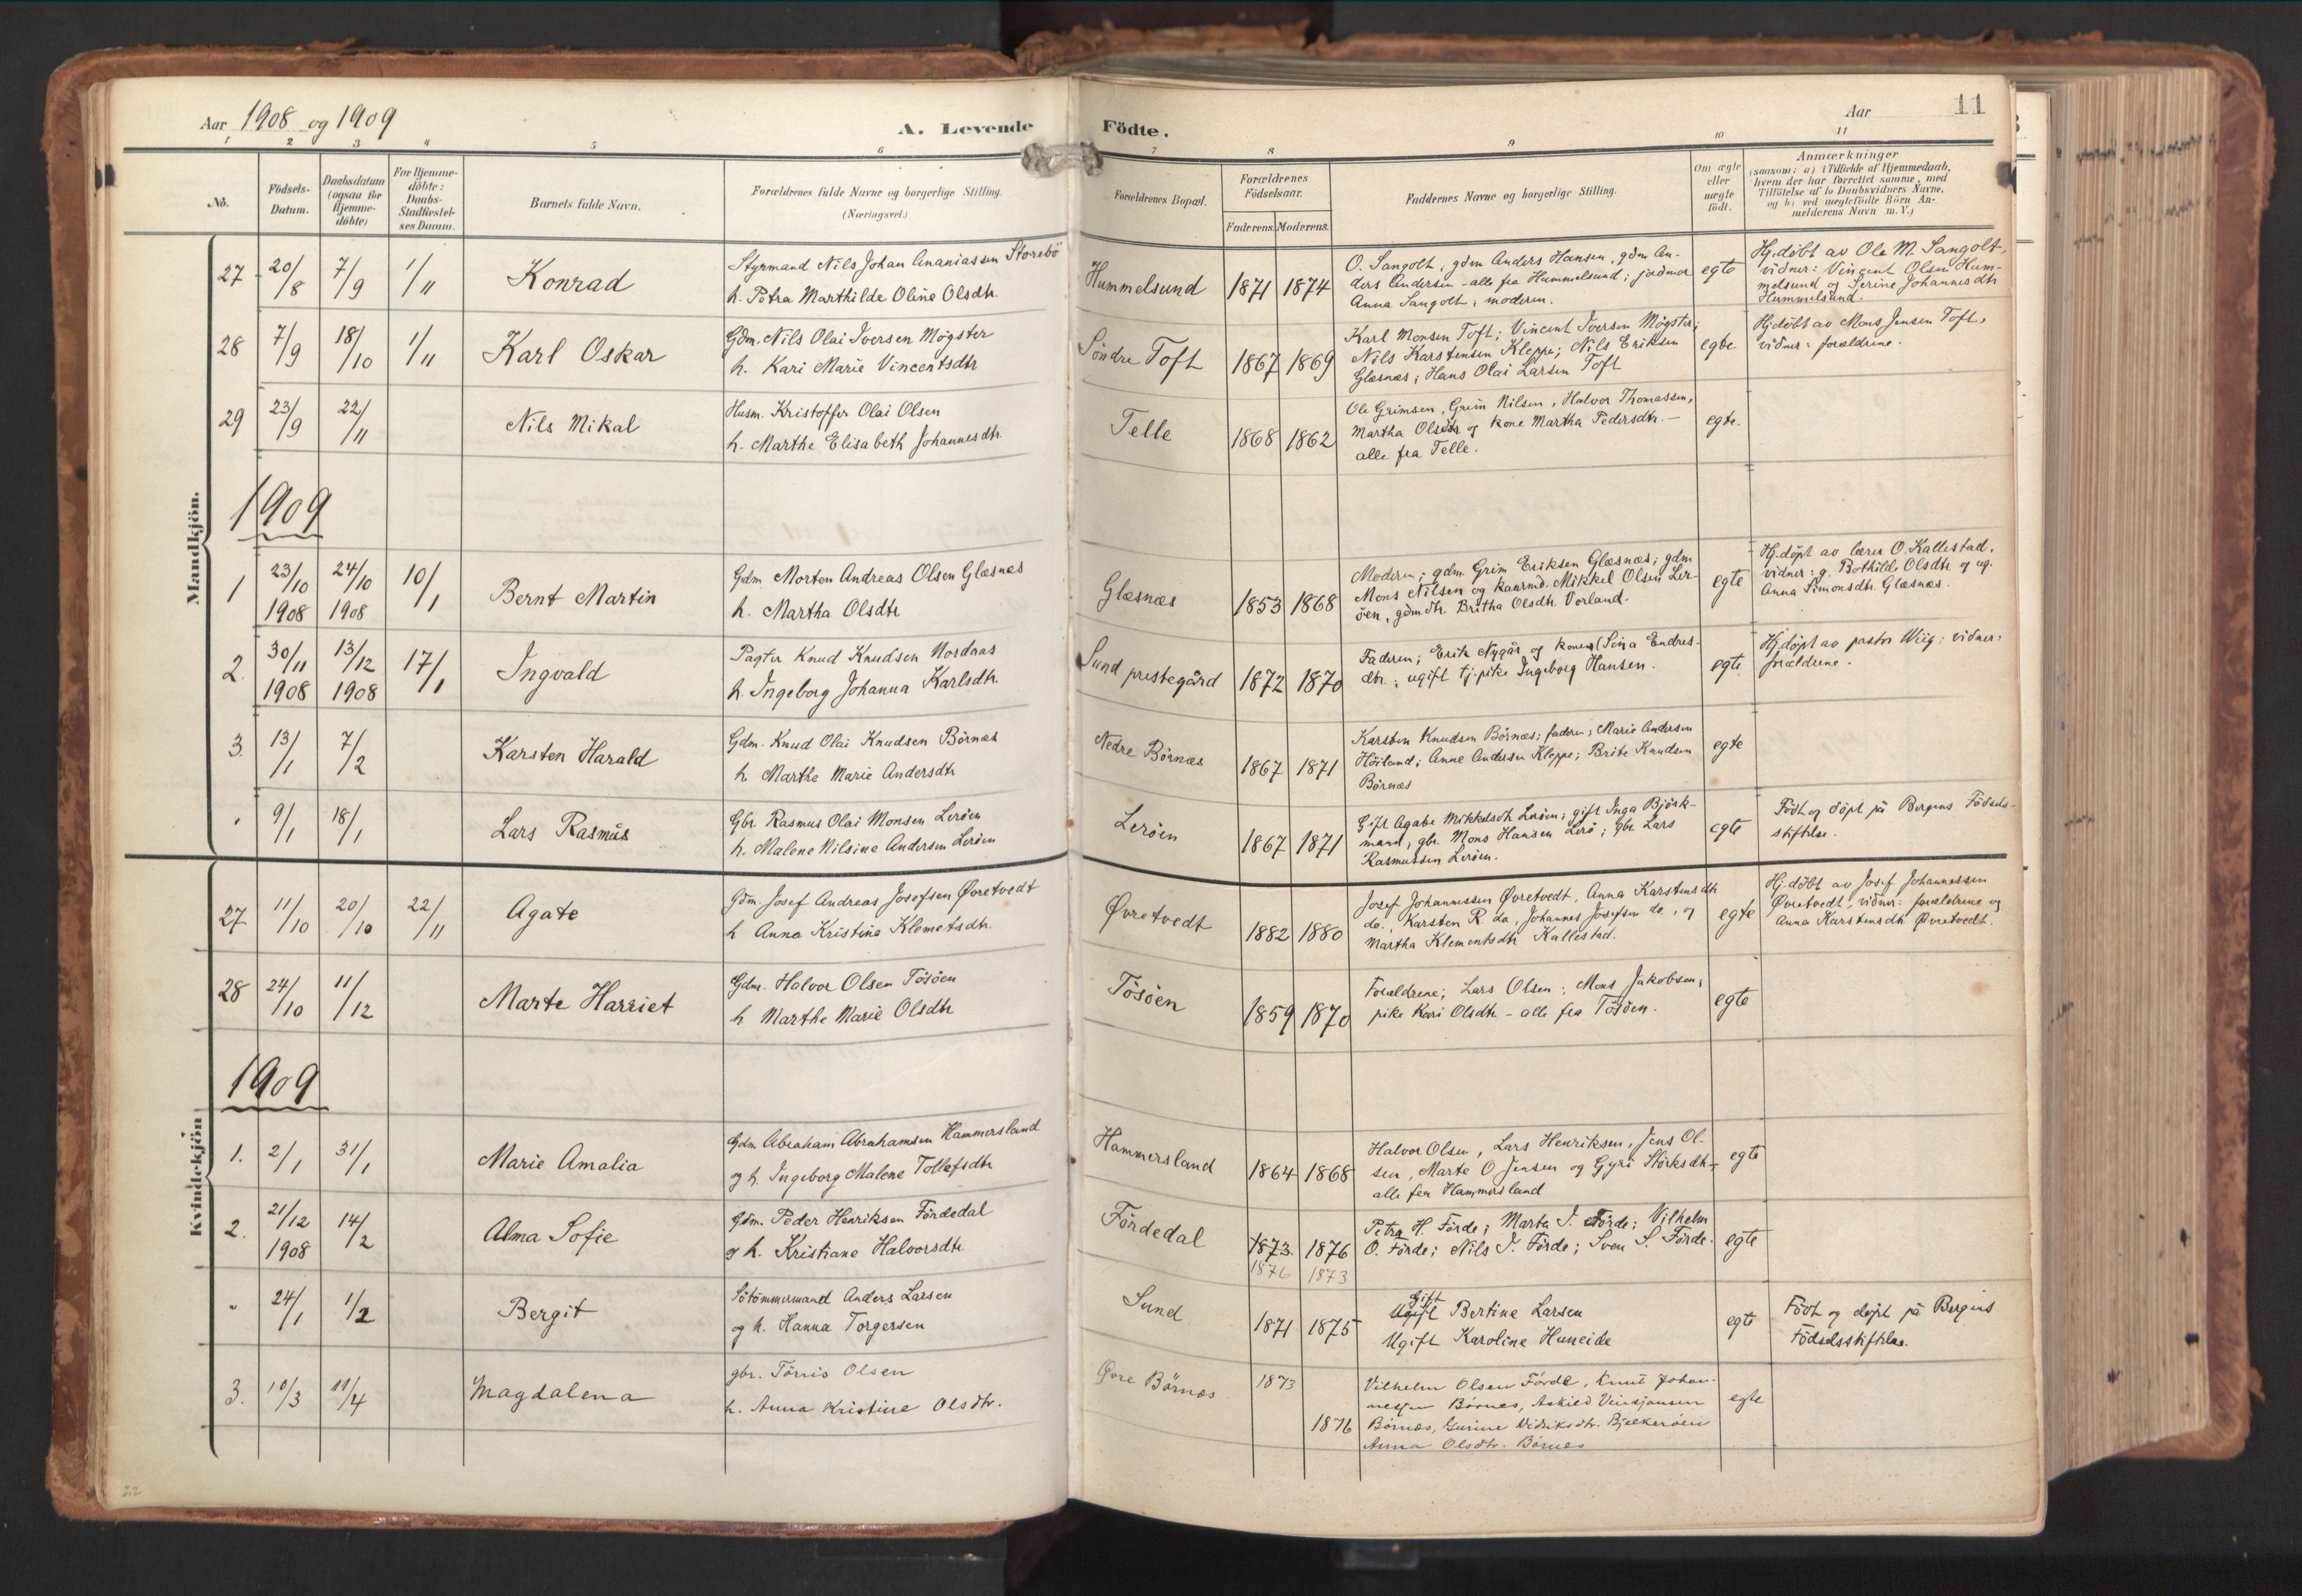 Aar 1908 og 1909
A. Levende Fødte.
Aar
11
1 2 3 4 5 6 7 8 9 10 11
No.
Födsels-
Datum.
Daabsdatum
(ogsaa för
Hjemme-
döbte)
For Hjemme-
döbte:
Daabs-
Stadfæstel-
ses Datum.
Barnets fulde Navn.
Forældrenes fulde Navne og borgerlige Stilling.
(Næringsvei.)
Forældrenes Bopæl.
Forældrenes
Födselsaar.
Faderens. Moderens.
Faddernes Navne og borgerlige Stilling.
Om ægte
eller
uægte
födt.
Anmærkninger
(saasom: a) i Tilfælde af Hjemmedaab,
hvem der har forrettet samme, med
Tilföielse af to Daabsvidners Navne.
og b) ved uægtefödte Börn An-
melderens Navn m. V.)
Mandkjön.
27 20/8 7/9 1/11 Konrad
Styrmand Nils Johan Ananiassen Storebö
h. Petra Marthilde Oline Olsdtr.
Hummelsund 1871 1874
O. Sangolt, gdm Anders Hansen, gdm An-
ders Andersen - alle fra Hummelsund; jordmor
Anna Sangolt, moderen.
egte
Hj.døbt av Ole M. Sangolt,
vidner: Vincent Olsen Hum-
melsund og Serine Johannesdtr
Hummelsund.
28 7/9 18/10 1/11 Karl Oskar
Gdm. Nils Olai Iversen Mögster
h. Kari Marie Vincentsdtr
Söndre Toft 1867 1869
Karl Monsen Toft; Vincent Iversen Mögster;
Nils Karstensen Kleppe; Nils Eriksen
Glæsnæs; Hans Olai Larsen Toft
egte
Hj.døbt av Mons Jensen Toft,
vidner: forældrene.
29 23/9 22/11 Nils Mikal
Husm. Kristoffer Olai Olsen
h. Marthe Elisabeth Johannesdtr.
Telle 1868 1862
Ole Grimsen, Grim Nilsen, Halvor Thomassen,
Martha Olsdtr og kone Martha Pedersdtr. -
alle fra Telle.
egte.
1909
1 23/10 1908 24/10 1908 10/1 Bernt Martin
Gdm Morten Andreas Olsen Glæsnæs
h. Martha Olsdtr
Glæsnæs 1853 1868
Moderen; gdm. Grim Eriksen Glæsnæs; gdm
Mons Nilsen og kaarmd. Mikkel Olsen Ler-
öen, gdm.dtr. Britha Olsdtr. Vorland.
egte
Hj.døpt av lærer O. Kallestad,
vidner: g. Bothilde Olsdtr og ug.
Anna Simonsdtr. Glæsnæs.
2. 30/11 1908 13/12 1908 17/1 Ingvald
Pagter Knud Knudsen Nordaas
h. Ingeborg Johanna Karlsdtr.
Sund prestegård 1872 1870
Faderen; Erik Nygår og kone (Sina Endres-
dtr.; ugift tj.pike Ingeborg Hansen.
egte
Hj.døpt av pastor Wiig; vidner:
forældrene.
3. 13/1 7/2 Karsten Harald
Gdm. Knud Olai Knudsen Börnæs
h. Marthe Marie Andersdtr
Nedre Börnæs 1867 1871
Karsten Knudsen Börnæs; faderen; Marie Andersen
Höiland; Anne Andersen Kleppe; Brite Knudsen
Börnæs
egte
" 9/1 18/1 Lars Rasmus
Gbr. Rasmus Olai Monsen Leröen
h. Malene Nilsine Andersen Leröen
Leröen 1867 1871
Gift Agate Mikkelsdtr Leröen; gift Inga Björk-
mann, gbr. Mons Hansen Lerö; gbr Lars
Rasmussen Leröen.
egte
Födt og döpt på Bergens Födsels-
stiftelse.
Kvindekjön
27 11/10 20/10 22/11 Agate
Gdm. Josef Andreas Josefsen Øvretvedt
h. Anna Kristine Klemetsdtr.
Øvretvedt 1882 1880
Josef Johannessen Øvretvedt, Anna Karstensdtr
do., Karsten R. do, Johannes Josefsen do., og
Martha Klementsdtr Kallestad.
egte
Hj.døbt av Josef Johannessen
Øvretvedt, vidner: forældrene og
Anna Karstensdtr Øvretvedt.
28 24/10 11/12 Marte Harriet
Gdm. Halvor Olsen Tösöen
h Marthe Marie Olsdtr
Tösöen 1859 1870
Forældrene; Lars Olsen; Mons Jakobsen;
pike Kari Olsdtr - alle fra Tösöen.
egte
1909
1. 2/1 31/1 Marie Amalia
Gdm Abraham Abrahamsen Hammersland
og h. Ingeborg Malene Tollefsdtr
Hammersland 1864 1868
Halvor Olsen, Lars Henriksen, Jens Ol-
sen, Marte O Jensen og Gyri Störksdtr -
alle fra Hammersland
egte
2. 21/12 1908 14/2 Alma Sofie
Gdm. Peder Henriksen Fördedal
og h. Kristiane Halvorsdtr.
Fördedal 1873 1876
1876 1873
Petra H. Förde; Marta J. Förde; Vilhelm
O. Förde; Nils J. Förde; Sven S. Förde.
egte
" 24/1 1/2 Bergit
Sötömmermand Anders Larsen
og h. Hanna Torgersen
Sund 1871 1875
Gift
Ugift Bertine Larsen
Ugift Karoline Huneide
egte
Födt og döpt på Bergens
Födselsstiftelse.
3. 10/3 11/4 Magdalena
gbr. Törris Olsen
h. Anna Kristine Olsdtr.
Øvre Börnæs 1873 1876
Vilhelm Olsen Förde, Knut Johan-
nessen Börnes, Askild Vinsjansen
Börnæs, Gurine Didriksdtr. Bjelkeröen
Anna Olsdtr. Börnes
egte